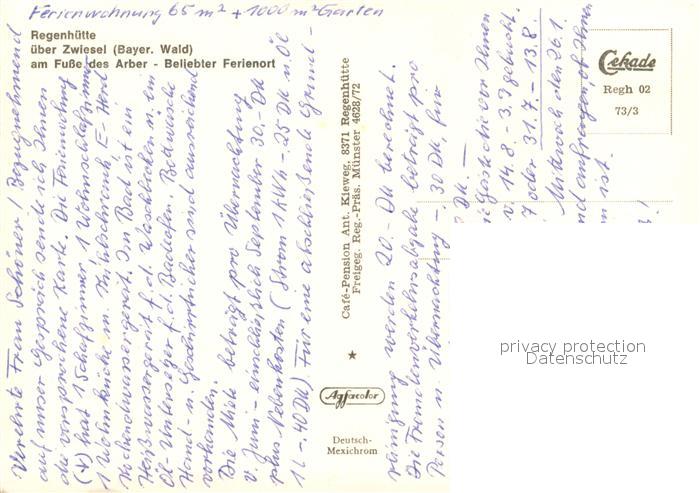 Ferienwohnung 65 m² + 1000 m² Garten
Regenhütte
über Zwiesel (Bayer. Wald)
am Fuße des Arber - Beliebter Ferienort
Verehrte Frau Schöner! Bezugnehmend
auf unser Gespräch sende ich Ihnen
die versprochene Karte. Die Ferienwohng
(*) hat 1 Schlafzimmer 1 Wohnschlafzimmer
1 Wohnküche m. Kühlschrank E-Herd
Kochendwassergerät. Im Bad ist ein
Heißwassergerät f. d. Waschbecken u. ein
Öl f. d. Badeofen. Bettwäsche
Hand- u. Geschirrtücher sind ausreichend
vorhanden.
Die Miete beträgt pro Übernachtung
v. Juni - einschließlich September 30.- DM
plus Nebenkosten (Strom 1 KWh -.25 DM u. Öl
1 L -.40 DM). Für eine abschließende Grund-
reinigung werden 20.- DM berechnet.
Die Fremdenverkehrsabgabe beträgt pro
Person u. Übernachtung -.30 DM, für
DM. -
die Gäste die vor Ihnen
v. 14.8 - 3.9 gebucht.
7 oder 31.7. - 13.8.
Mittwoch den 26.1.
und anfragen ob Ihnen
ist.
Café-Pension Ant. Kieweg, 8371 Regenhütte
Freigeg. Reg.-Präs. Münster 4628/72
Agfacolor
Deutsch-
Mexichrom
Cekade
Regh 02
73/3
privacy protection
Datenschutz